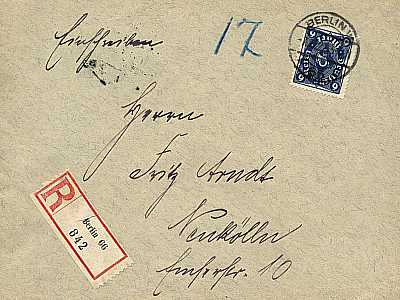 Einschreiben
17
BERLIN W
Herrn
Fritz Arndt
Neukölln
Emserstr. 10
R
Berlin 66
842